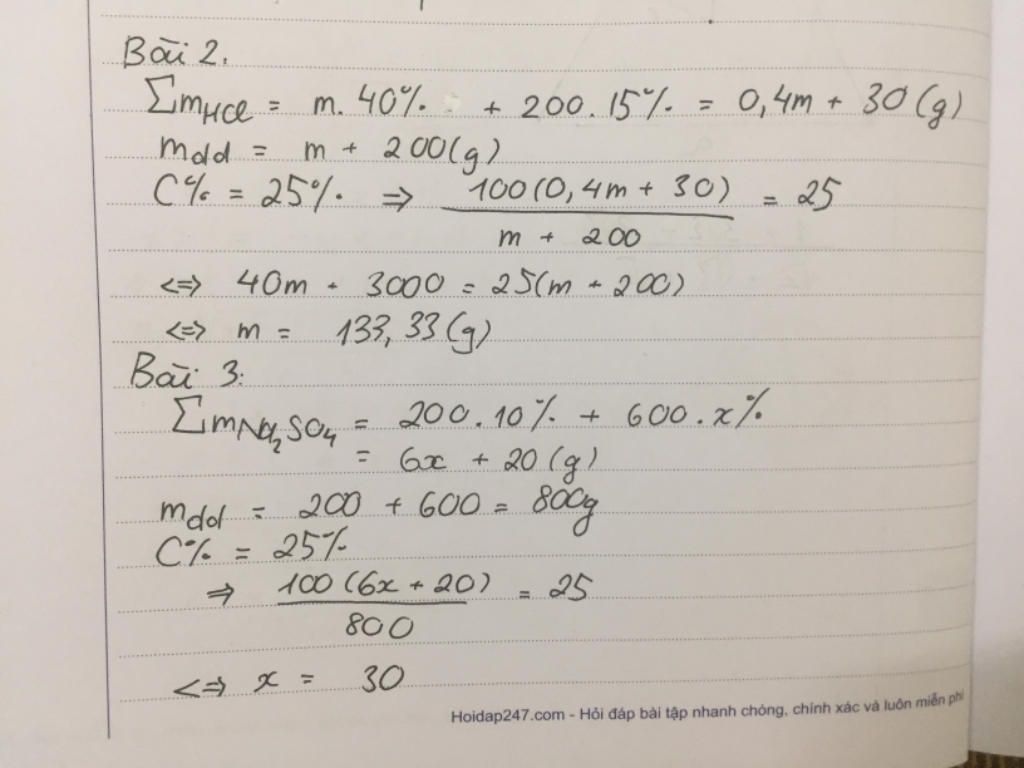 Bài 2.
∑mHCl = m. 40% + 200. 15% = 0,4m + 30 (g)
mdd = m + 200(g)
C% = 25% ⇒ 100(0,4m + 30) / m + 200 = 25
⇔ 40m + 3000 = 25(m + 200)
⇔ m = 133,33 (g)
Bài 3:
∑mNa₂SO₄ = 200. 10% + 600. x%
= 6x + 20 (g)
mdd = 200 + 600 = 800g
C% = 25%
⇒ 100 (6x + 20) / 800 = 25
⇔ x = 30
Hoidap247.com - Hỏi đáp bài tập nhanh chóng, chính xác và luôn miễn phí